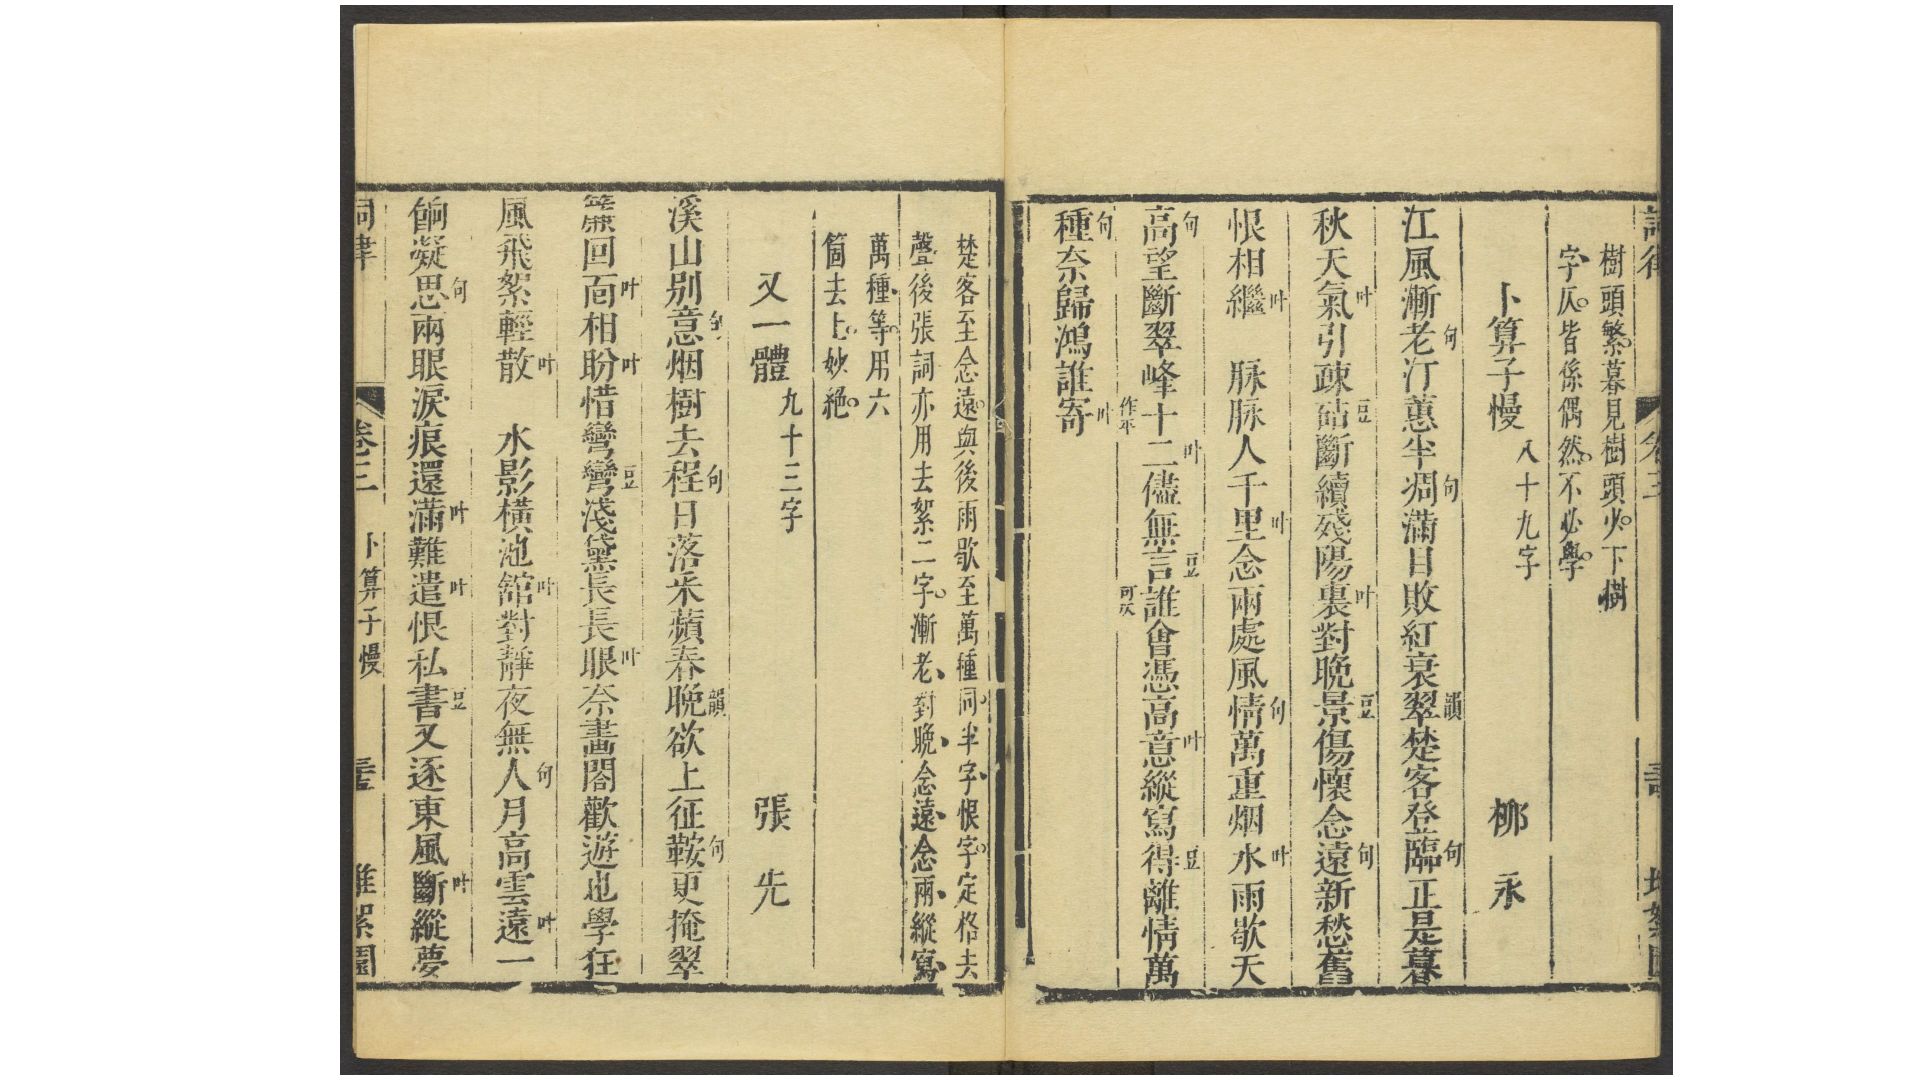 詞律 卷三 堆絮園
樹頭繁暮見樹頭少下樹
字仄皆係偶然不必學
卜算子慢 八十九字 柳永
江風漸老句汀蕙半凋句滿目敗紅衰翠韻楚客登臨句正是暮
秋天氣叶引疎砧豆斷續殘陽裏叶對晚景豆傷懷念遠句新愁舊
恨相繼叶 脉脉人千里叶念兩處風情句萬重烟水叶雨歇天
高句望斷翠峰十作平二叶儘無言豆誰可仄會憑高意叶縱寫得豆離情萬
種句奈歸鴻誰寄叶
楚客至念遠與後雨歇至萬種同半字恨字定格去
聲後張詞亦用去絮二字漸老對晚念遠念兩縱寫
萬種等用六
箇去上妙絕
又一體 九十三字 張先
溪山別意句烟樹去程句日落采蘋春晚韻欲上征鞍句更掩翠
簾回面叶相盼叶惜彎彎豆淺黛長長眼叶奈畫閣歡遊也學狂
風飛絮輕散叶 水影橫池館叶對靜夜無人句月高雲遠叶一
餉凝思句兩眼淚痕還滿叶難遣叶恨私書豆又逐東風斷叶縱夢
詞律 卷三 卜算子慢 堆絮園